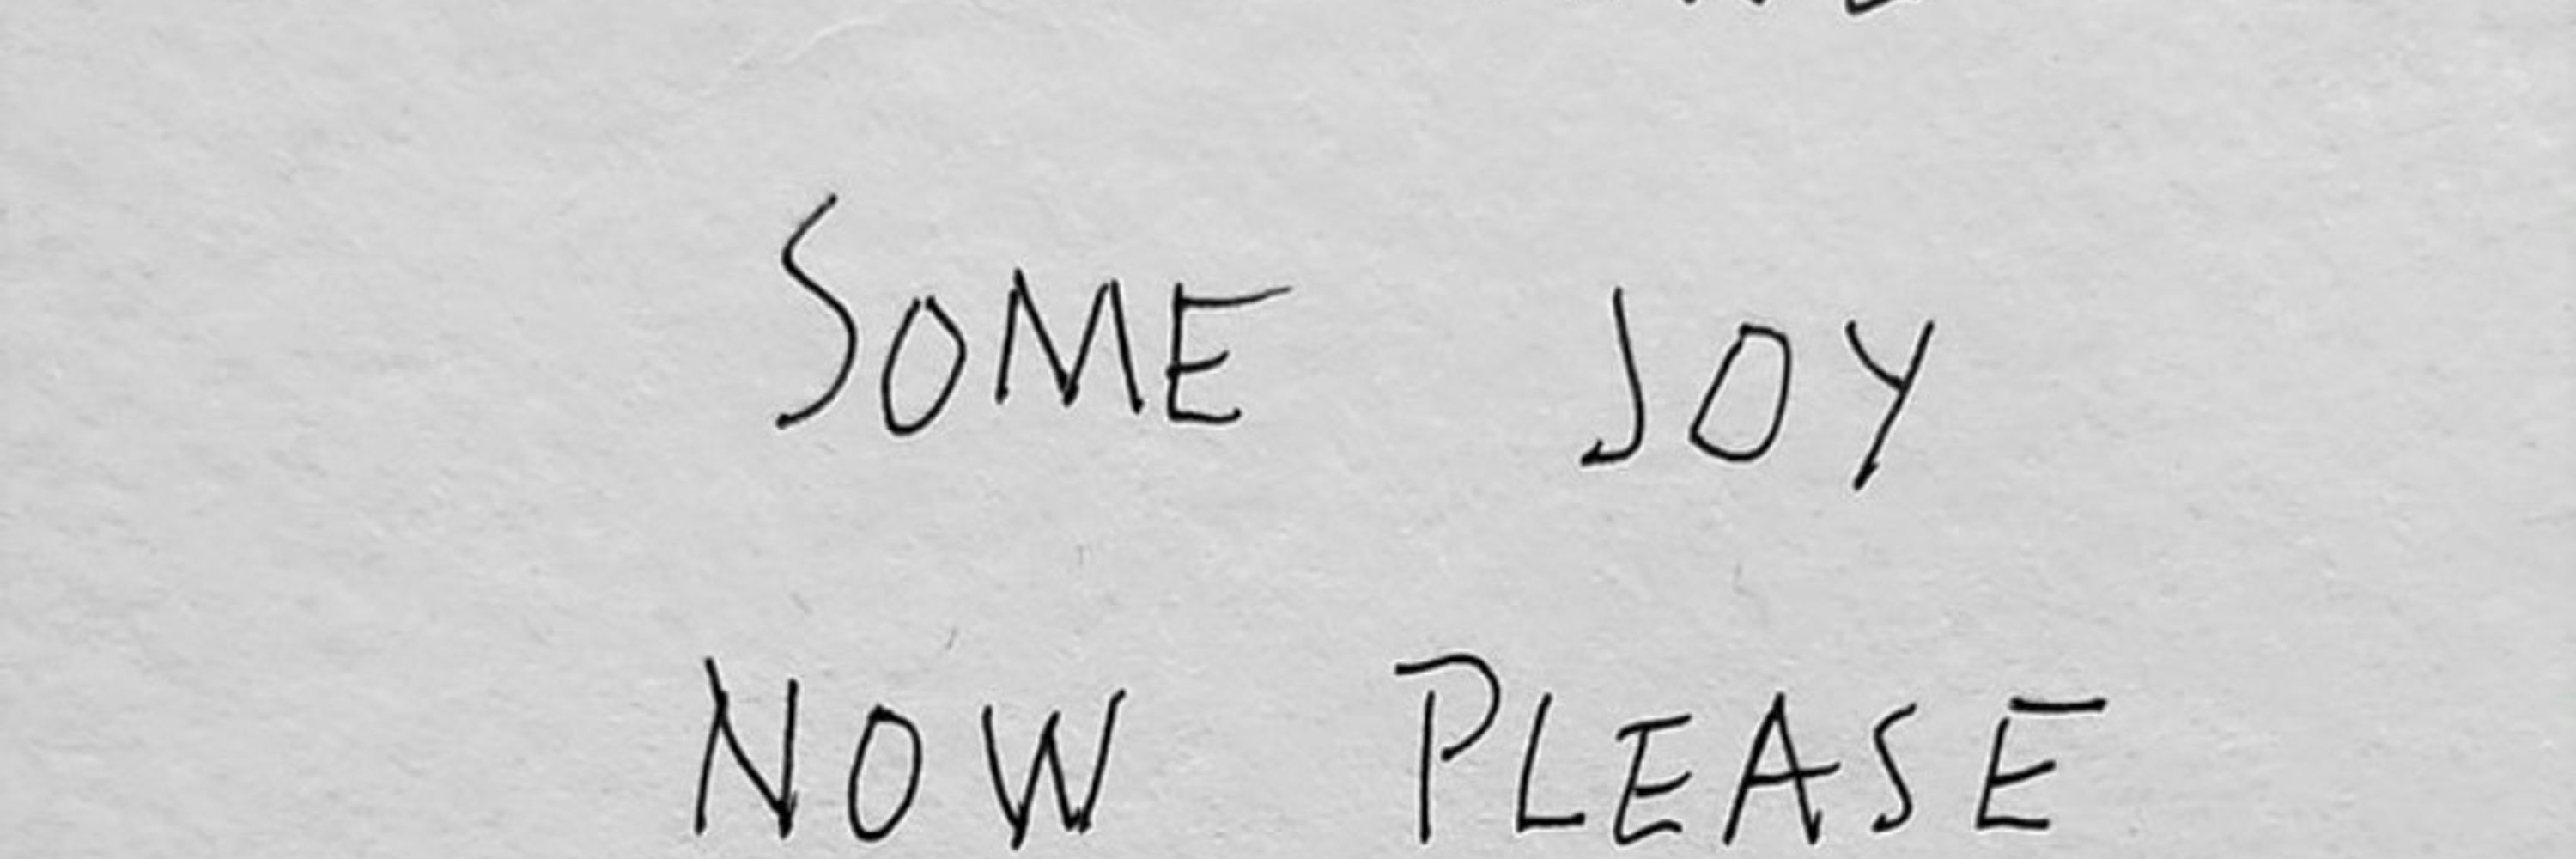 SOME JOY
NOW PLEASE